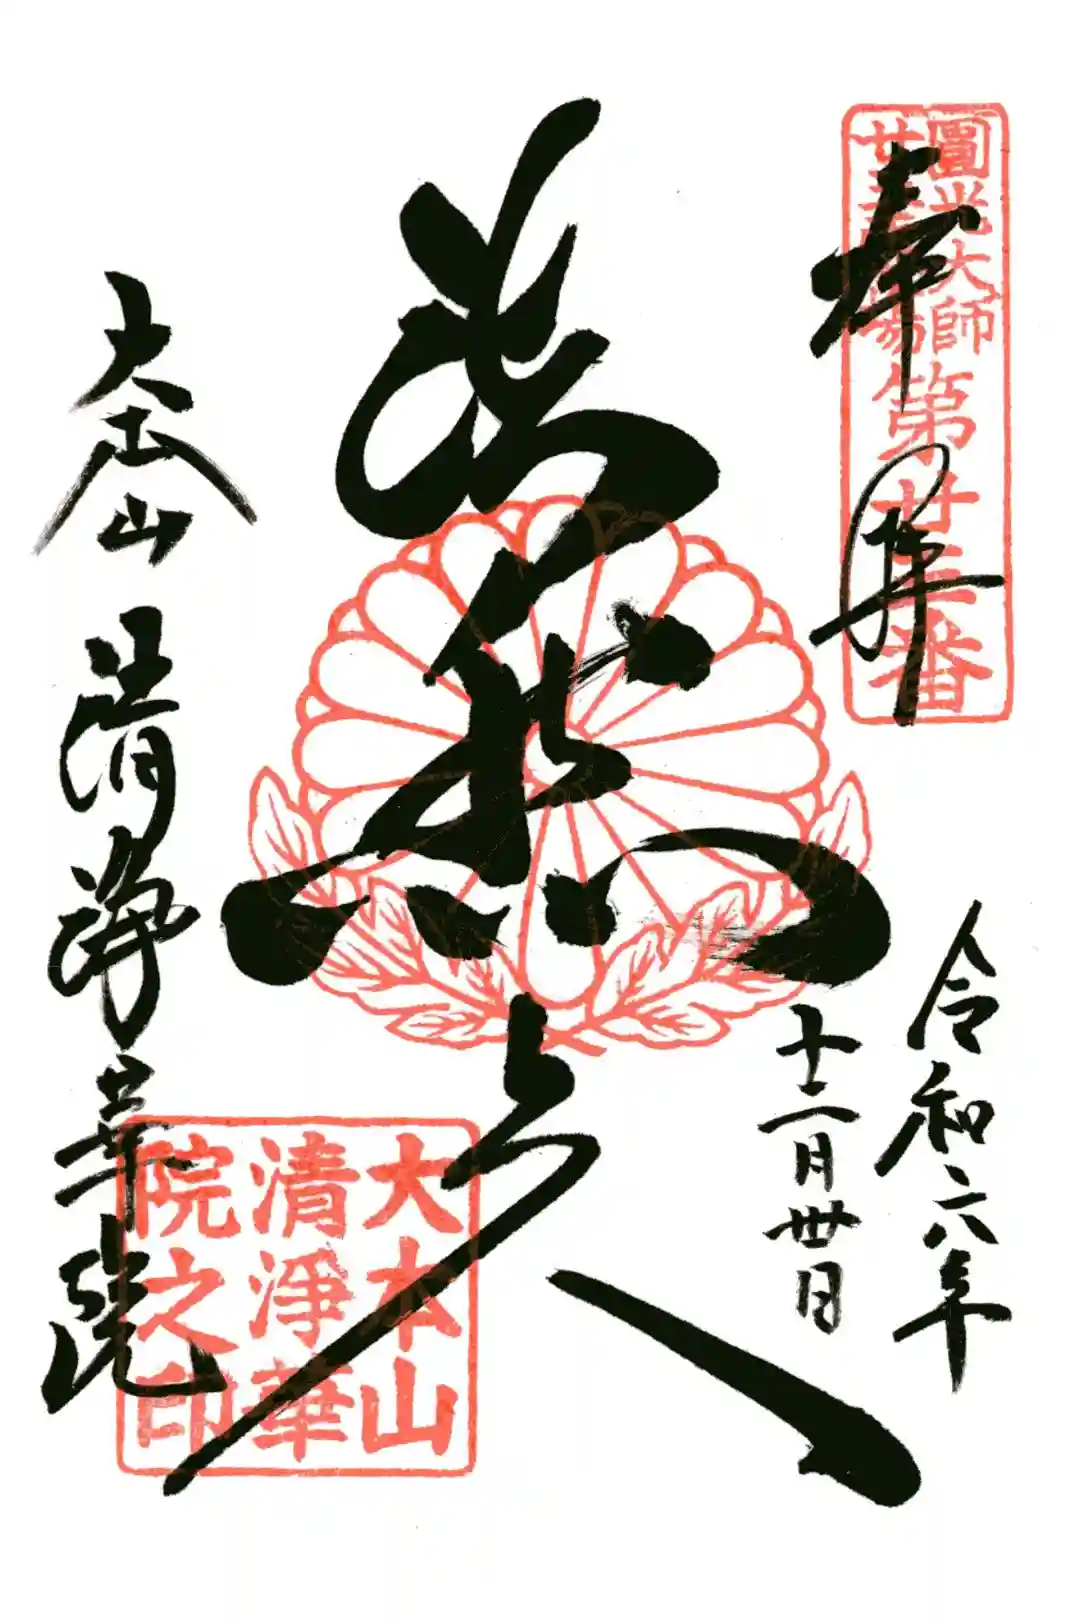 奉拝
圓光大師
廿五霊場
第廿三番
令和六年
十二月卅日
法然上人
大本山 清浄華院
大本山
清淨華
院之印